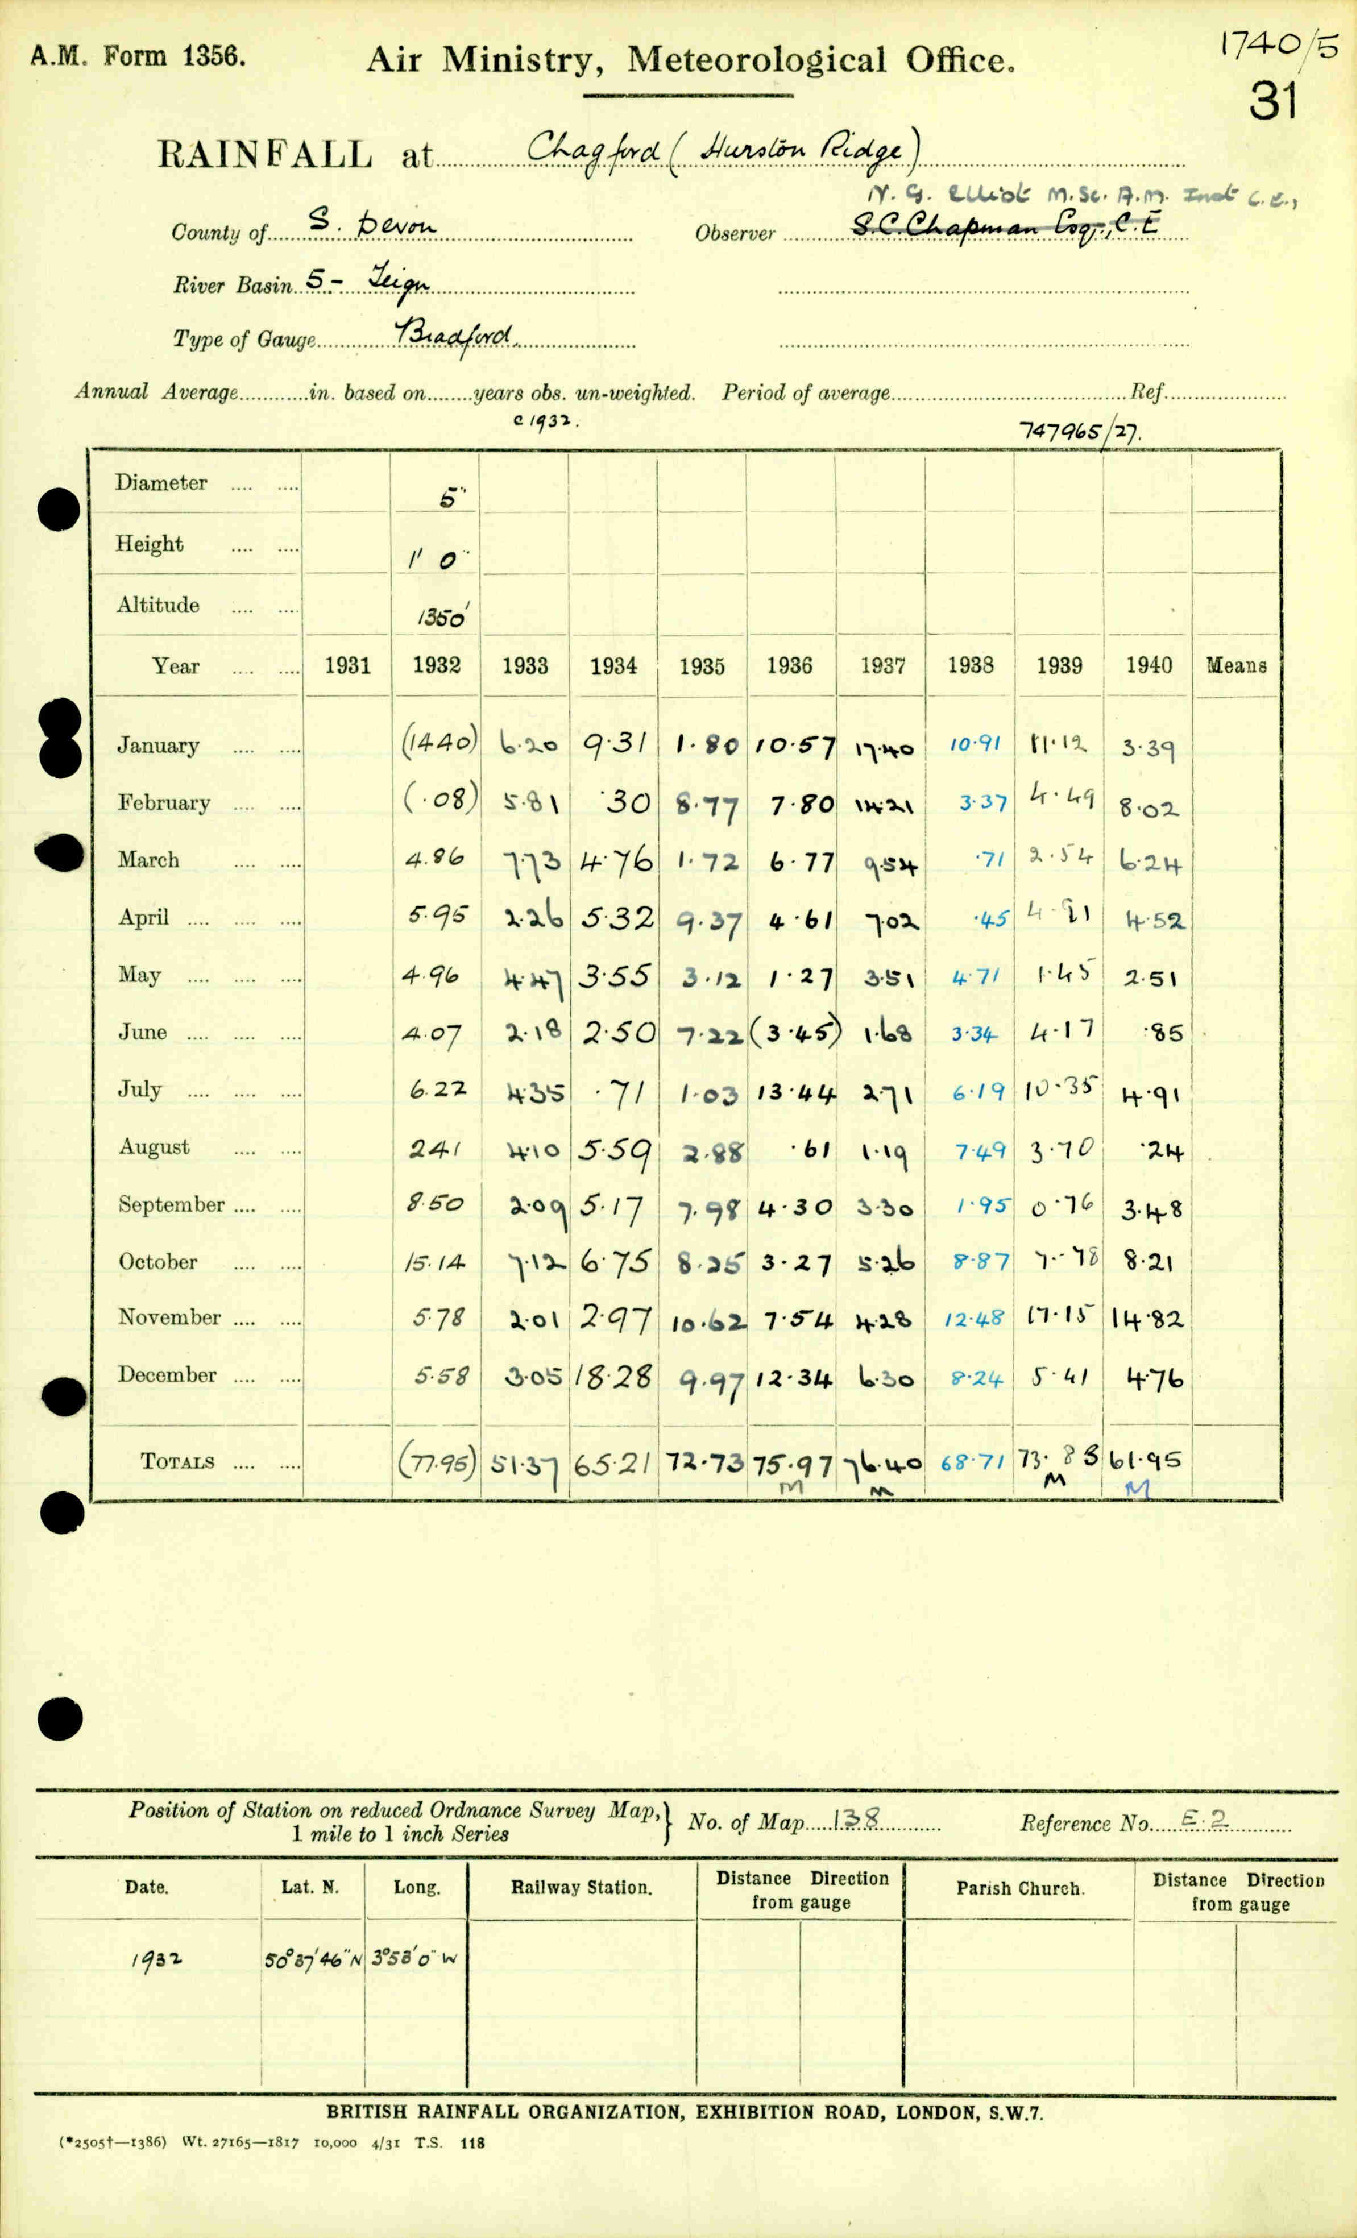 A.M. Form 1356.
Air Ministry, Meteorological Office.
1740/5
31
RAINFALL at Chagford (Hurston Ridge)
N. G. Elliot M.Sc. A.M. Inst C.E.,
County of S. Devon Observer S.C. Chapman Esq., C.E
River Basin 5 - Teign
Type of Gauge Bradford.
Annual Average in. based on years obs. un-weighted. Period of average Ref.
c 1932. 747965/27.
Diameter 5"
Height 1' 0"
Altitude 1350'
Year 1931 1932 1933 1934 1935 1936 1937 1938 1939 1940 Means
January (14.40) 6.20 9.31 1.80 10.57 17.40 10.91 11.12 3.39
February (.08) 5.81 .30 8.77 7.80 14.21 3.37 4.49 8.02
March 4.86 7.73 4.76 1.72 6.77 9.54 .71 2.54 6.24
April 5.95 2.26 5.32 9.37 4.61 7.02 .45 4.91 4.52
May 4.96 4.47 3.55 3.12 1.27 3.51 4.71 1.45 2.51
June 4.07 2.18 2.50 7.22 (3.45) 1.68 3.34 4.17 .85
July 6.22 4.35 .71 1.03 13.44 2.71 6.19 10.35 4.91
August 2.41 4.10 5.59 2.88 .61 1.19 7.49 3.70 .24
September 8.50 2.09 5.17 7.98 4.30 3.30 1.95 0.76 3.48
October 15.14 7.12 6.75 8.25 3.27 5.26 8.87 7.78 8.21
November 5.78 2.01 2.97 10.62 7.54 4.28 12.48 17.15 14.82
December 5.58 3.05 18.28 9.97 12.34 6.30 8.24 5.41 4.76
TOTALS (77.95) 51.37 65.21 72.73 75.97 76.40 68.71 73.83 61.95
M M M M
Position of Station on reduced Ordnance Survey Map, 1 mile to 1 inch Series } No. of Map 138 Reference No. E.2
Date. Lat. N. Long. Railway Station. Distance Direction from gauge Parish Church. Distance Direction from gauge
1932 50° 37' 46" N 3° 53' 0" W
BRITISH RAINFALL ORGANIZATION, EXHIBITION ROAD, LONDON, S.W.7.
(*2505†—1386) Wt. 27165—1817 10,000 4/31 T.S. 118